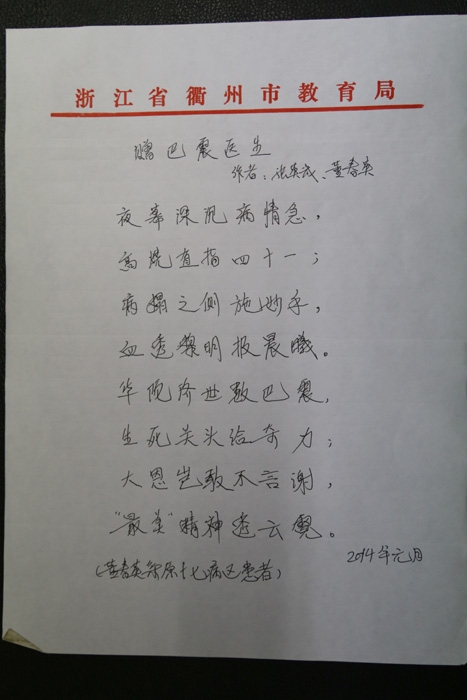 浙江省衢州市教育局
赠巴震医生
作者:张英成、黄春英
夜幕深沉病情急,
高烧直指四十一;
病榻之侧施妙手,
血透黎明报晨曦。
华佗济世数巴震,
生死关头给奇力;
大恩岂敢不言谢,
“最美”精神透云霓。
(黄春英系原十七病区患者)
2014年元月